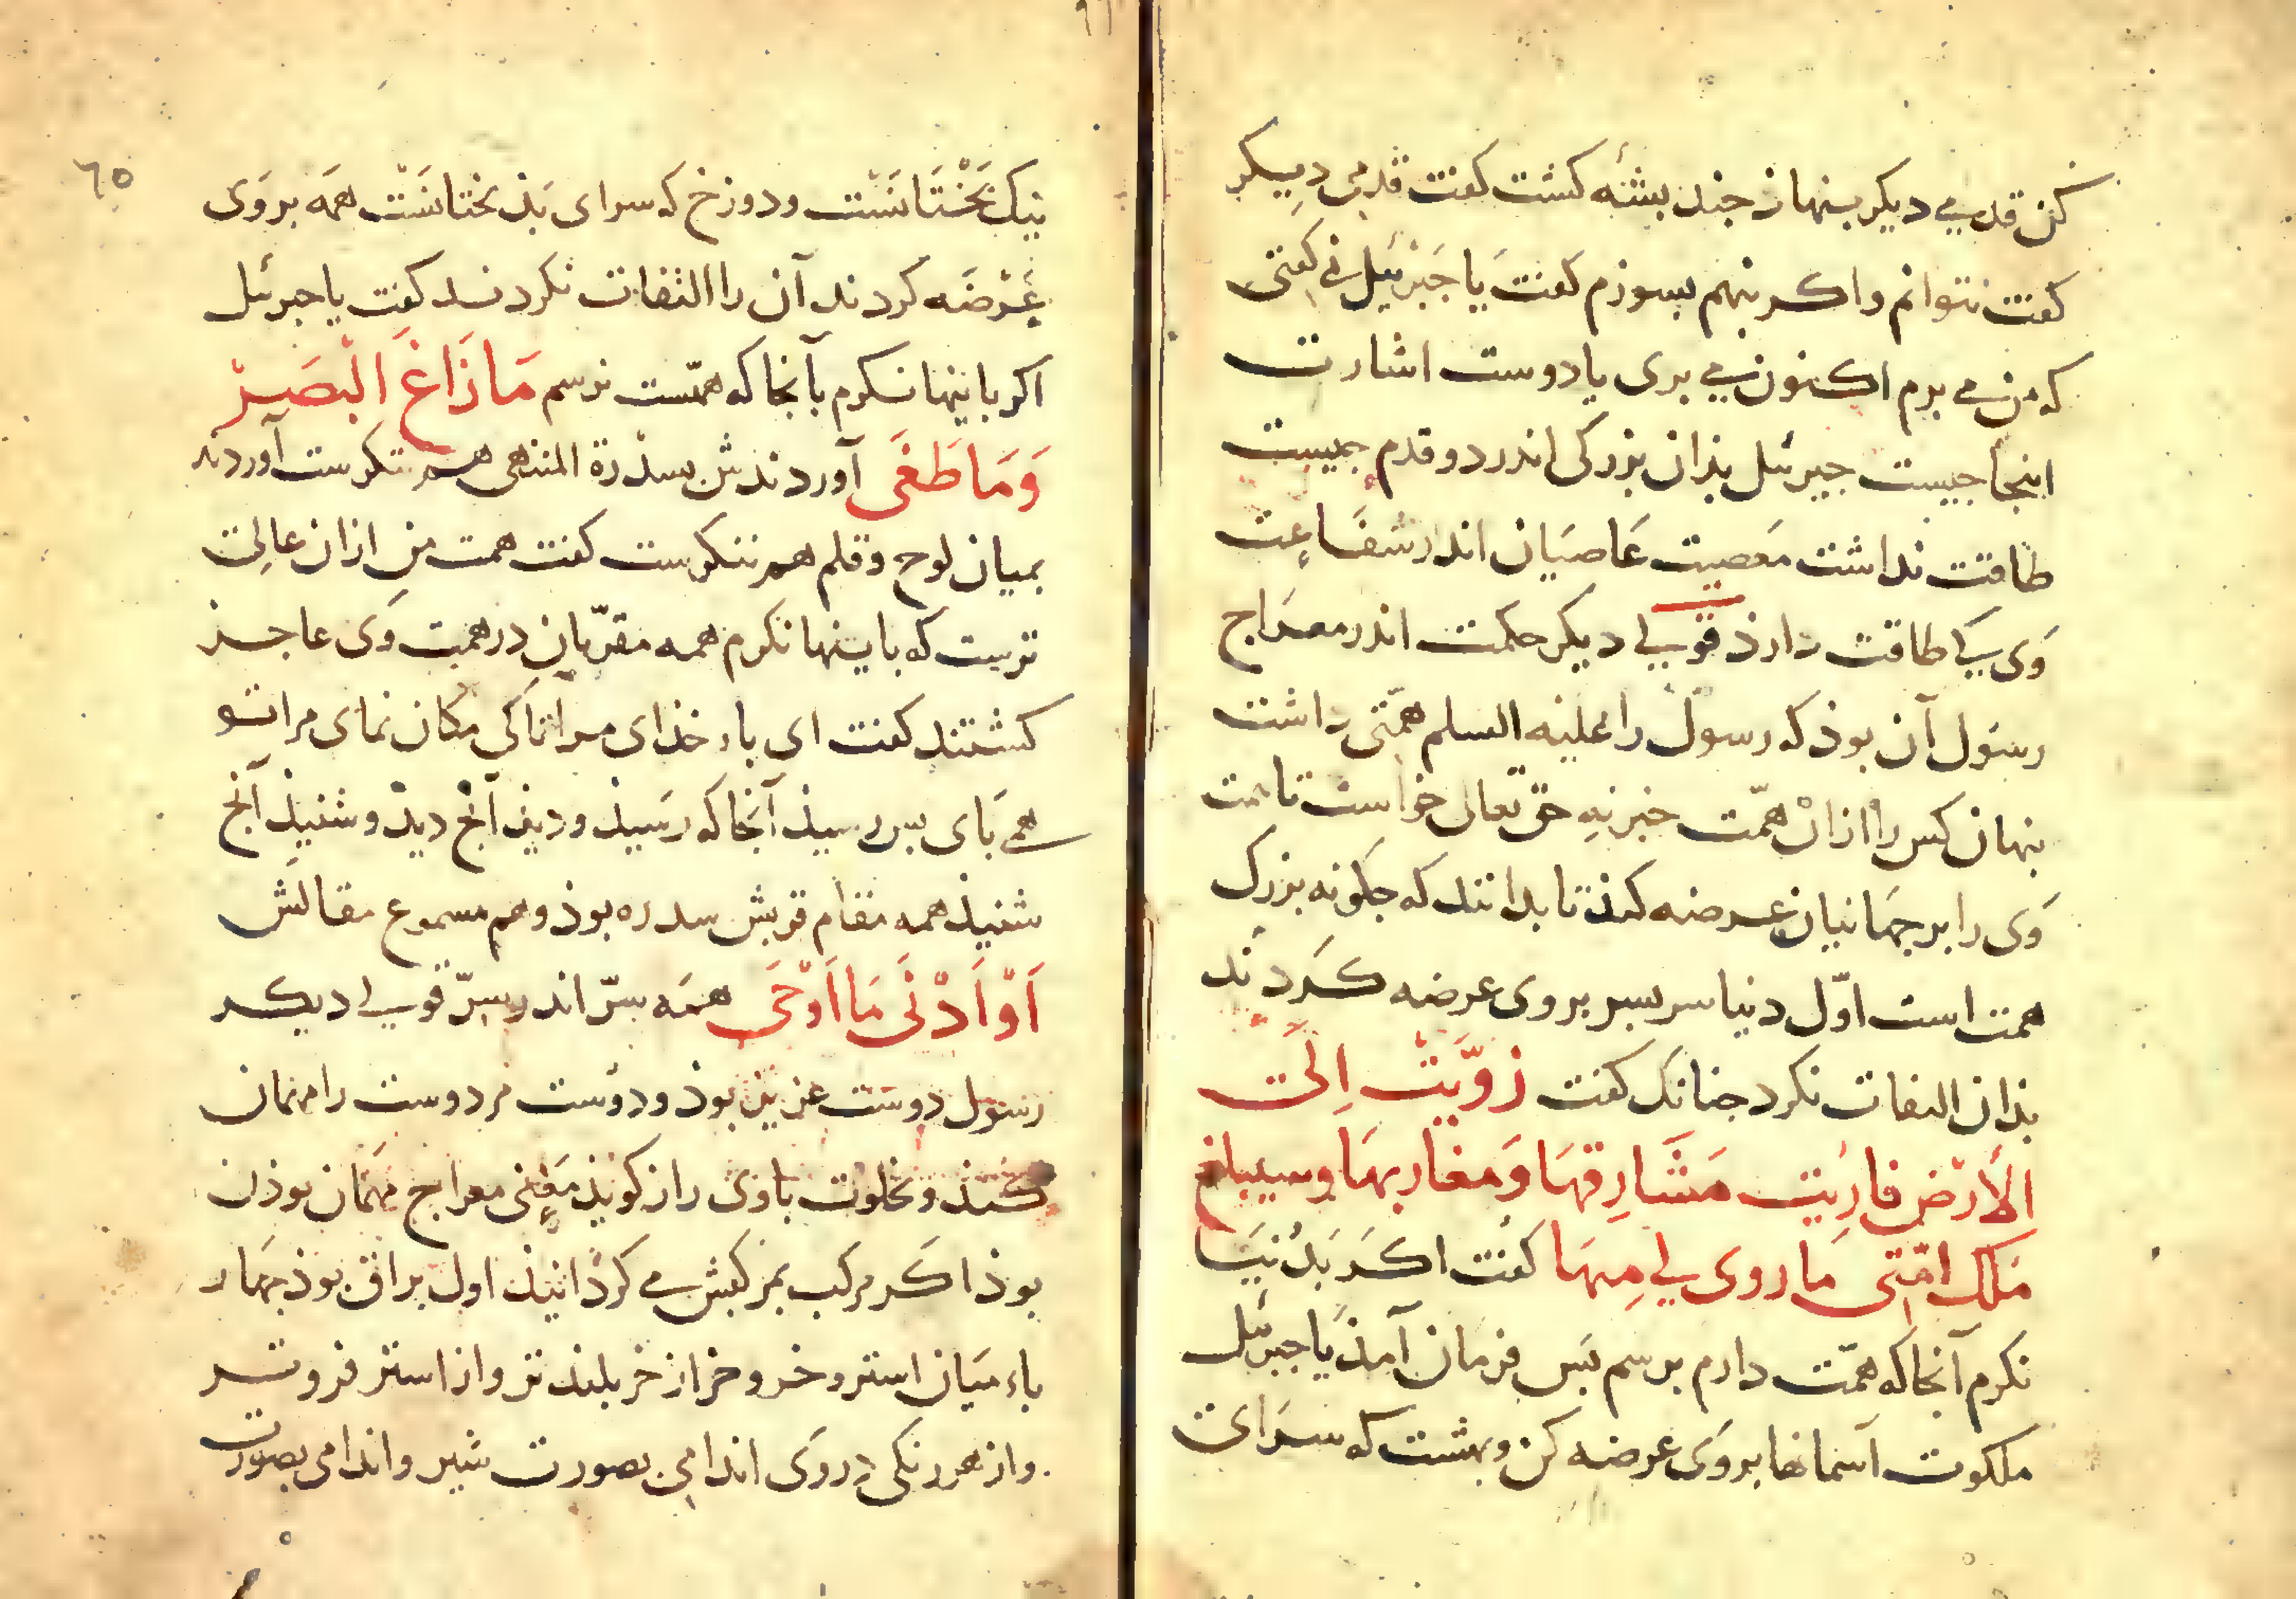 کن قدمی دیکر بنهاذ جند بشئه کشت کفت قدمی دیکر
کفت نتوانم واکر بنهم بسوزم کفت یا جبرئیل نی کفتی
که من می برم اکنون نمی بری یا دوست اشارت
اینجا جیست جبرئل بذان بزرکی اندر دو قدم جمیست
طاقت نداشت معصیت عاصیان اندر شفاعت
وی کی طاقت دارذ قولی دیکر حکمت اندر معراج
رسول آن بوذ که رسول را علیه السلم همتی داشت
بنهان کس را ازان همت خبر نه حق تعالی خواست تا همت
وی را بر جهانیان عرضه کنذ تا بدانند که جکونه بزرک
همت است اول دنیا سر بسر بروی عرضه کردند
بذان التفات نکرد جنانک کفت زویت الی
الارض فاریت مشارقها ومغاربها وسیبلغ
ملک امتی ما روی لی منها کفت اکر بدنیا
نکرم آنجا که همت دارم برسم بس فرمان آمذ یا جبرئل
ملکوت آسمانها بروی عرضه کن وبهشت که سرای
٦٥
نیک بختانست ودوزخ که سرای بذ بختانست همه بروی
عرضه کردند آن را التفات نکردند کفت یا جبرئل
اکر باینها نکرم بآنجا که همتست نرسم ما زاغ البصر
وما طغی آوردندش بسدرة المنتهی هم ننکرست آوردند
بمیان لوح وقلم هم ننکرست کفت همت من ازان عالی
ترست که باینها نکرم همه مقربان در همت وی عاجز
کشتند کفت ای بار خذای مرا تاکی مکان نمای مرا تو
می بای بس رسیذ آنجا که رسیذ ودیذ آنج دیذ وشنیذ آنج
شنیذ همه مقام قربش سدره بوذ وهم مسموع مقالش
او ادنی ما اوحی همه سر اندر سر قولی دیکر
رسول دوست عزیز بوذ ودوست مر دوست را مهمان
کنذ وبخلوت با وی راز کویذ معنی معراج مهمان بوذن
بوذ اکر مرکب بمرکبش می کردانیذ اول براق بوذ جهار
باء میان استر وخر وخر از خر بلند تر واز استر فروتر
واز هر رنکی در وی اندامی بصورت شیر واندامی بصورت